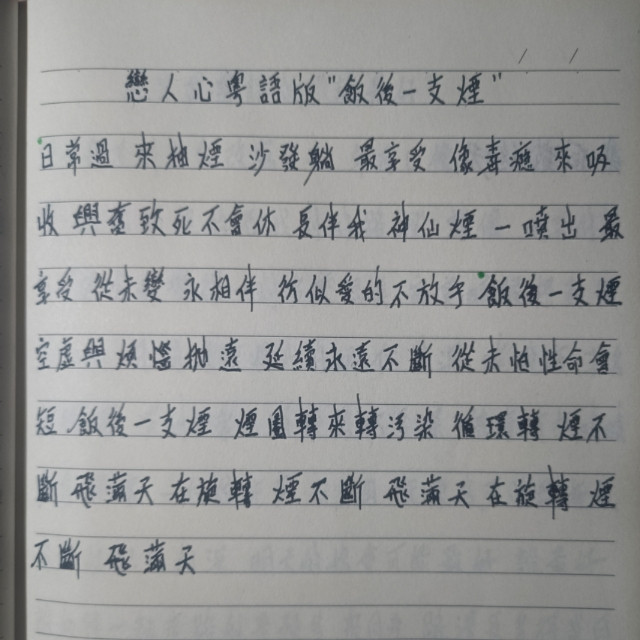 戀人心粵語版"飯後一支煙"
日常過 來抽煙 沙發躺 最享受 像毒癮 來吸
收 興奮致死不會休 長伴我 神仙煙 一噴出 最
享受 從未變 永相伴 彷似愛的不放手 飯後一支煙
空虛與煩惱拋遠 延續永遠不斷 從未怕性命會
短 飯後一支煙 煙圈轉來轉污染 循環轉 煙不
斷 飛滿天 在旋轉 煙不斷 飛滿天 在旋轉 煙
不斷 飛滿天